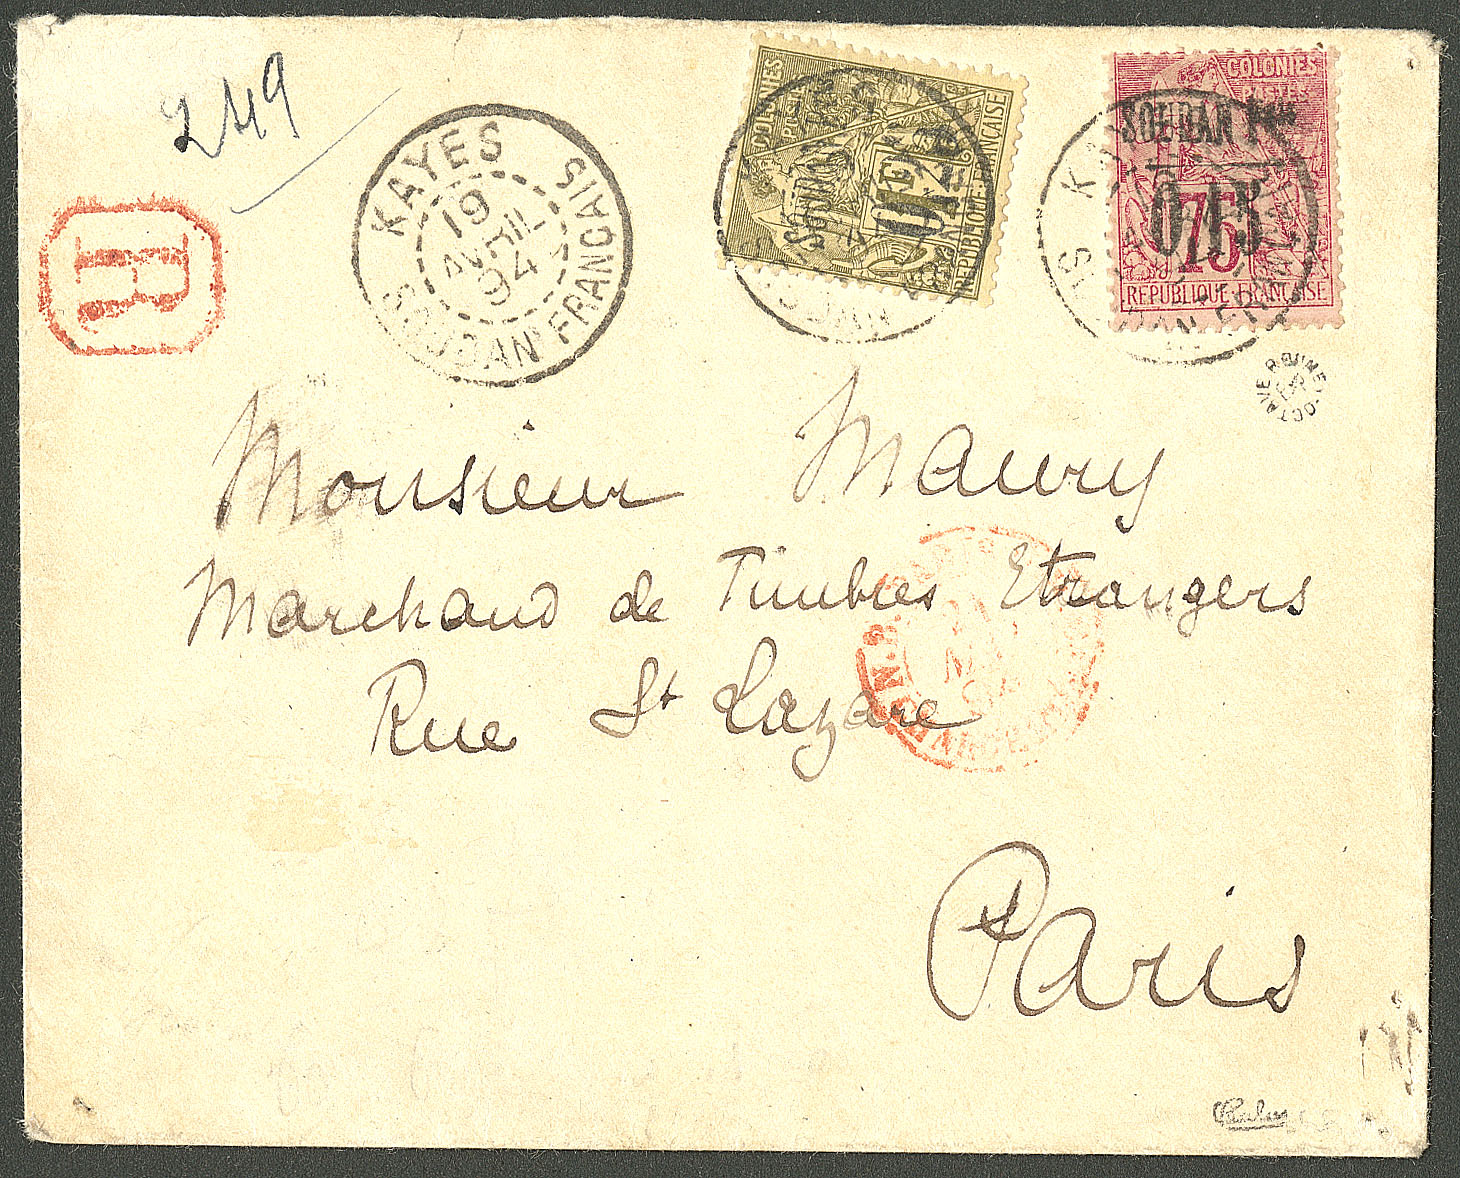 249
R
KAYES
19
AVRIL
94
SOUDAN FRANÇAIS
COLONIES
POSTES
SOUDAN Fais
0,25
RÉPUBLIQUE FRANÇAISE
COLONIES
POSTES
SOUDAN Fais
0,15
75
RÉPUBLIQUE FRANÇAISE
OCTAVE ROUMET
Monsieur Maury
Marchand de Timbres Etrangers
Rue St Lazare
Paris